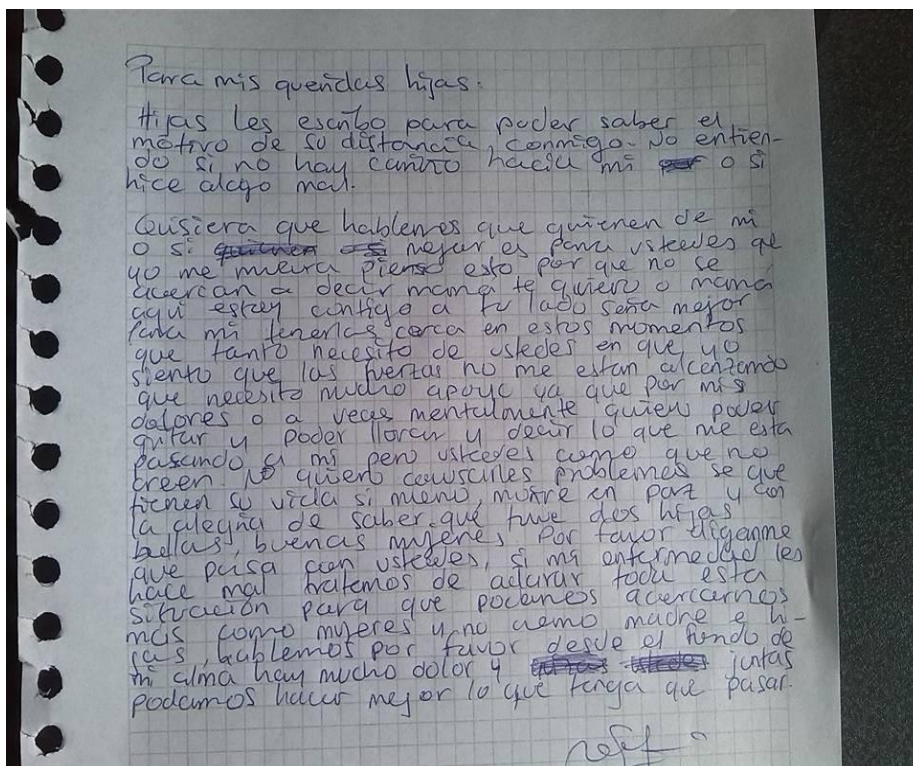 Para mis queridas hijas.
Hijas les escribo para poder saber el
motivo de su distancia, conmigo. No entien-
do si no hay cariño hacia mi o si
hice algo mal.
Quisiera que hablemos que quieren de mi
o si mejor es para ustedes que
yo me muera pienso esto por que no se
acercan a decir mamá te quiero o mamá
aqui estoy contigo a tu lado seria mejor
para mi tenerlas cerca en estos momentos
que tanto necesito de ustedes en que yo
siento que las fuerzas no me estan alcanzando
que necesito mucho apoyo ya que por mis
dolores o a veces mentalmente quiero poder
gritar y poder llorar y decir lo que me esta
pasando a mi pero ustedes como que no
creen. No quiero causarles problemas se que
tienen su vida si muero, morire en paz y con
la alegria de saber que tuve dos hijas
bellas, buenas mujeres, Por favor diganme
que pasa con ustedes, si mi enfermedad les
hace mal tratemos de aclarar toda esta
situación para que podamos acercarnos
mas como mujeres y no como madre e hi-
jas, hablemos por favor desde el fondo de
mi alma hay mucho dolor y juntas
podamos hacer mejor lo que tenga que pasar.